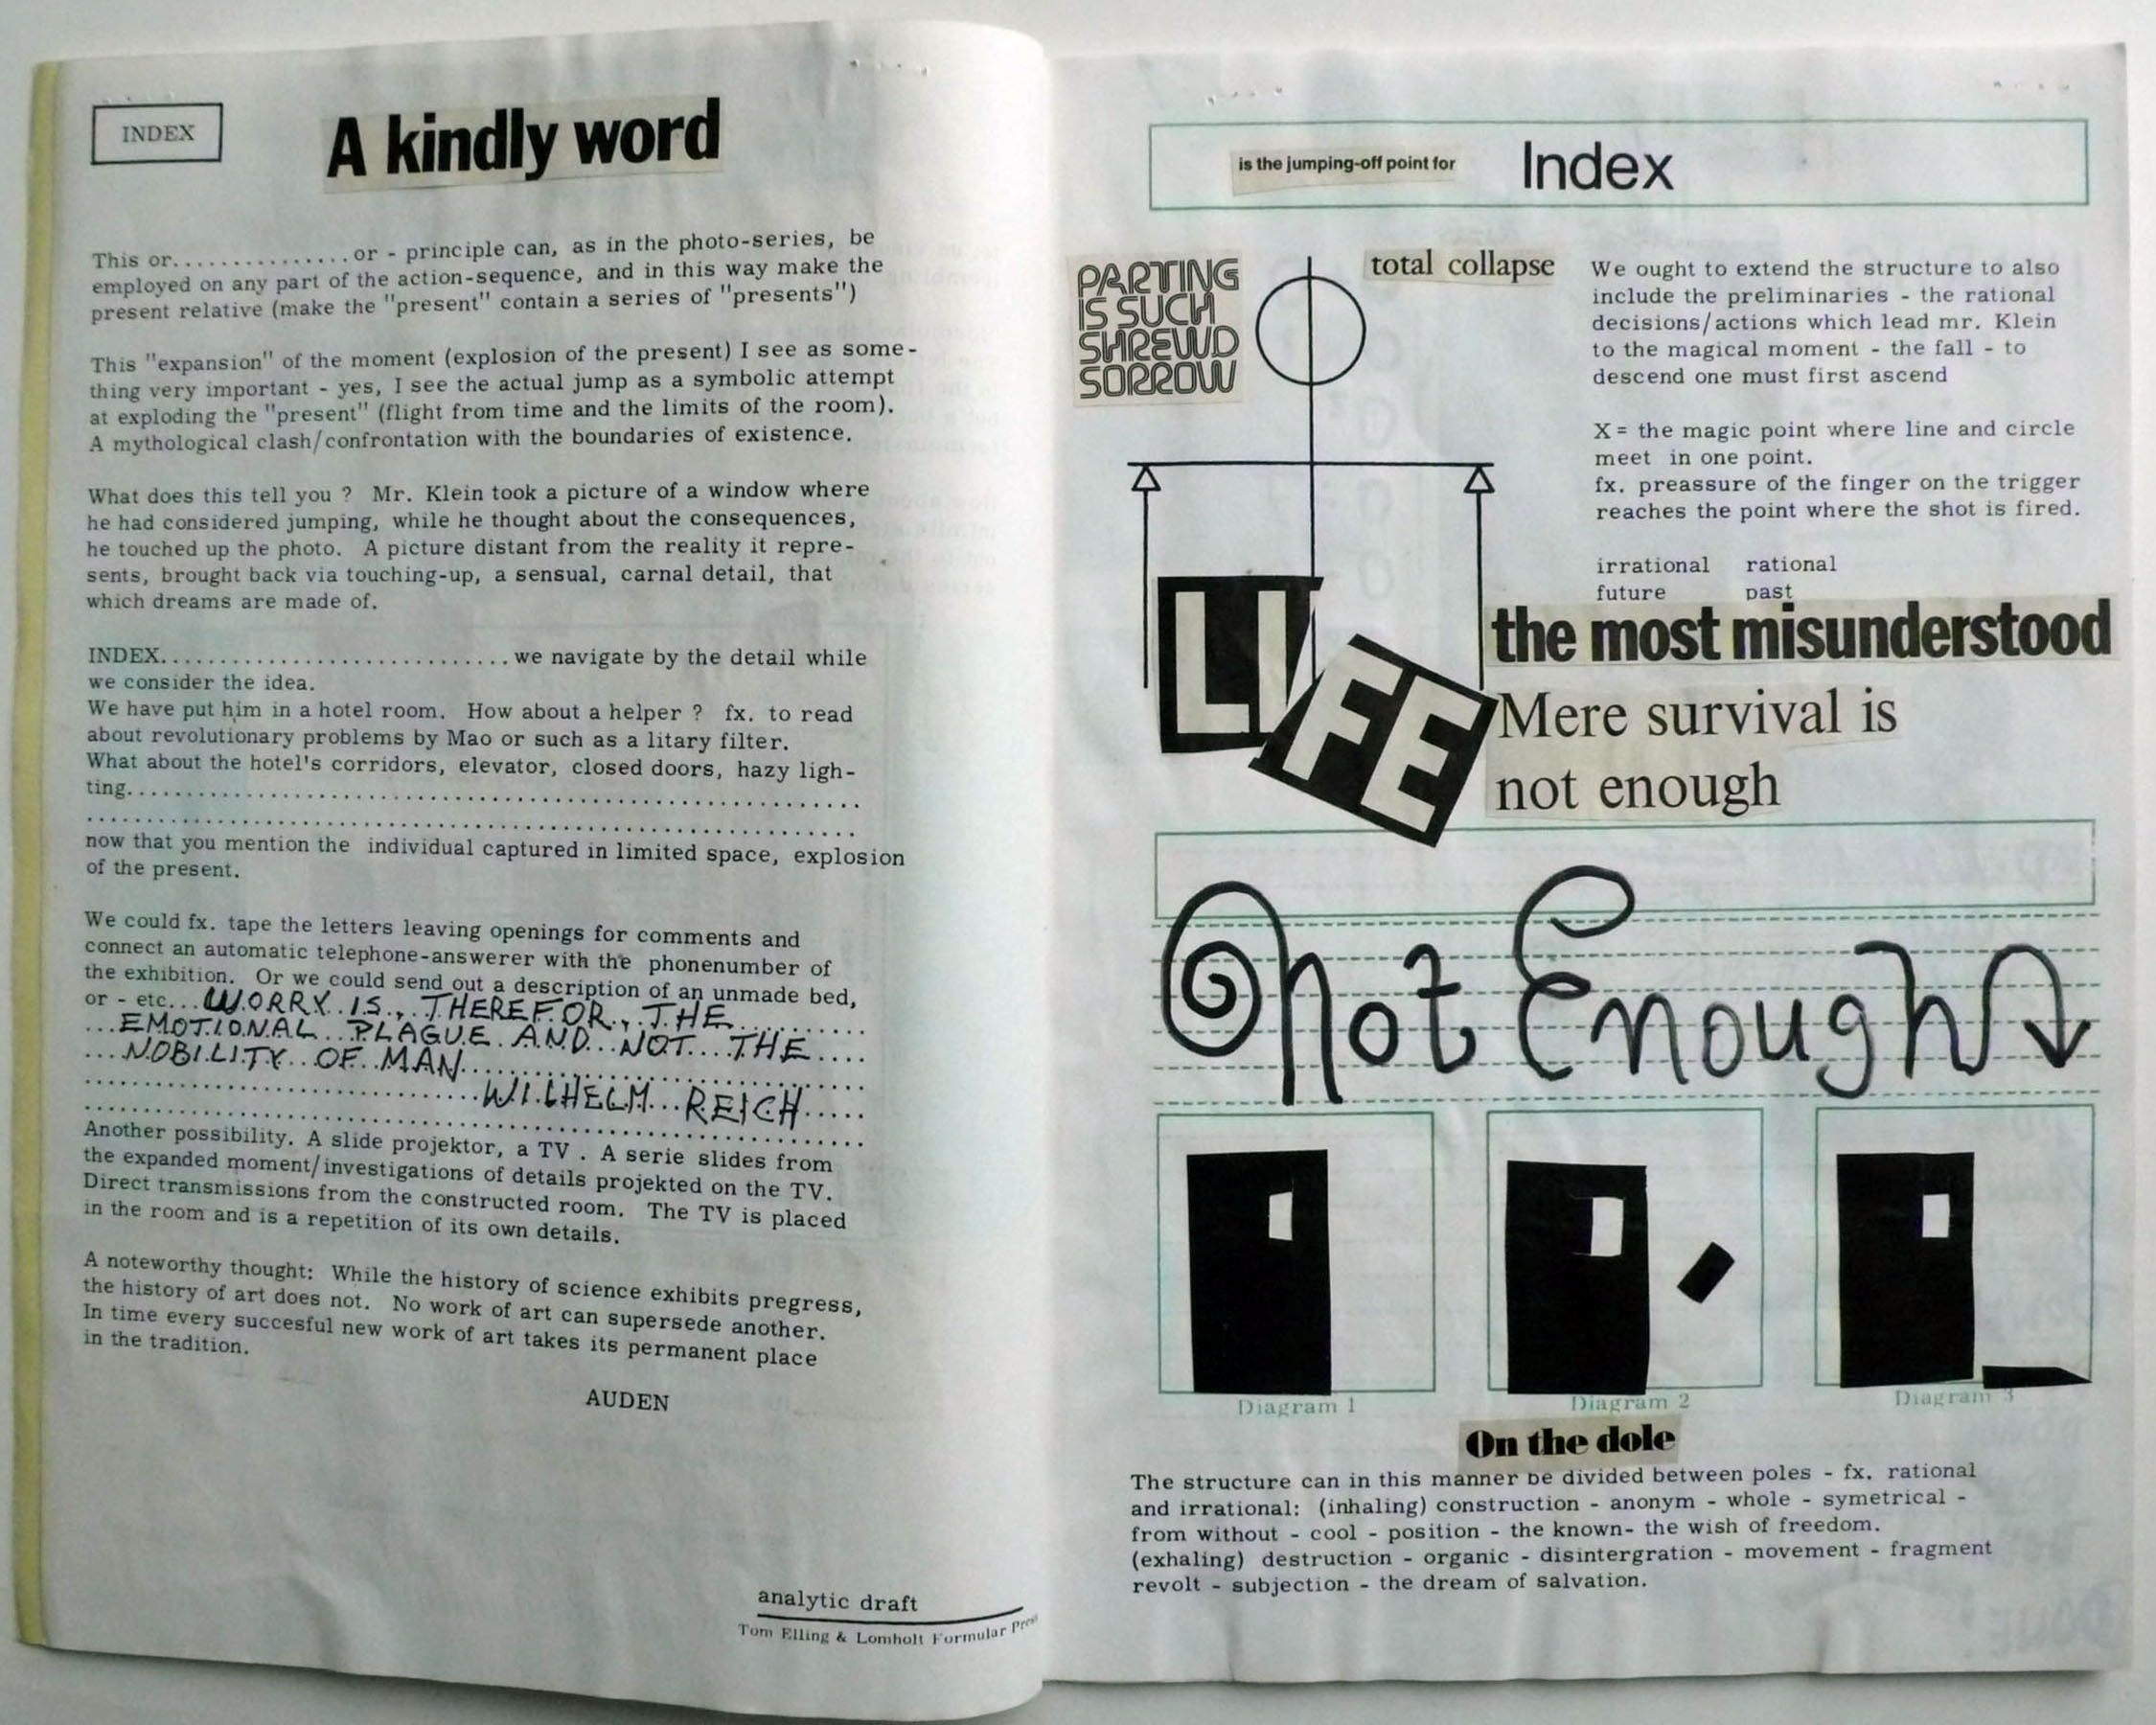 INDEX
A kindly word
This or...............or - principle can, as in the photo-series, be
employed on any part of the action-sequence, and in this way make the
present relative (make the "present" contain a series of "presents")
This "expansion" of the moment (explosion of the present) I see as some-
thing very important - yes, I see the actual jump as a symbolic attempt
at exploding the "present" (flight from time and the limits of the room).
A mythological clash/confrontation with the boundaries of existence.
What does this tell you ? Mr. Klein took a picture of a window where
he had considered jumping, while he thought about the consequences,
he touched up the photo. A picture distant from the reality it repre-
sents, brought back via touching-up, a sensual, carnal detail, that
which dreams are made of.
INDEX.............................we navigate by the detail while
we consider the idea.
We have put him in a hotel room. How about a helper ? fx. to read
about revolutionary problems by Mao or such as a litary filter.
What about the hotel's corridors, elevator, closed doors, hazy ligh-
ting.............................................................
.................................................................
now that you mention the individual captured in limited space, explosion
of the present.
We could fx. tape the letters leaving openings for comments and
connect an automatic telephone-answerer with the phonenumber of
the exhibition. Or we could send out a description of an unmade bed,
or - etc...WORRY IS, THEREFOR, THE
EMOTIONAL PLAGUE AND NOT THE
NOBILITY OF MAN
WILHELM REICH
Another possibility. A slide projektor, a TV . A serie slides from
the expanded moment/investigations of details projekted on the TV.
Direct transmissions from the constructed room. The TV is placed
in the room and is a repetition of its own details.
A noteworthy thought: While the history of science exhibits pregress,
the history of art does not. No work of art can supersede another.
In time every succesful new work of art takes its permanent place
in the tradition.
AUDEN
analytic draft
Tom Elling & Lomholt Formular Press
is the jumping-off point for Index
PARTING
IS SUCH
SHREWD
SORROW
total collapse
We ought to extend the structure to also
include the preliminaries - the rational
decisions/actions which lead mr. Klein
to the magical moment - the fall - to
descend one must first ascend
X = the magic point where line and circle
meet in one point.
fx. preassure of the finger on the trigger
reaches the point where the shot is fired.
irrational rational
future past
LIFE
the most misunderstood
Mere survival is
not enough
not Enough
Diagram 1
Diagram 2
Diagram 3
On the dole
The structure can in this manner be divided between poles - fx. rational
and irrational: (inhaling) construction - anonym - whole - symetrical -
from without - cool - position - the known- the wish of freedom.
(exhaling) destruction - organic - disintergration - movement - fragment
revolt - subjection - the dream of salvation.